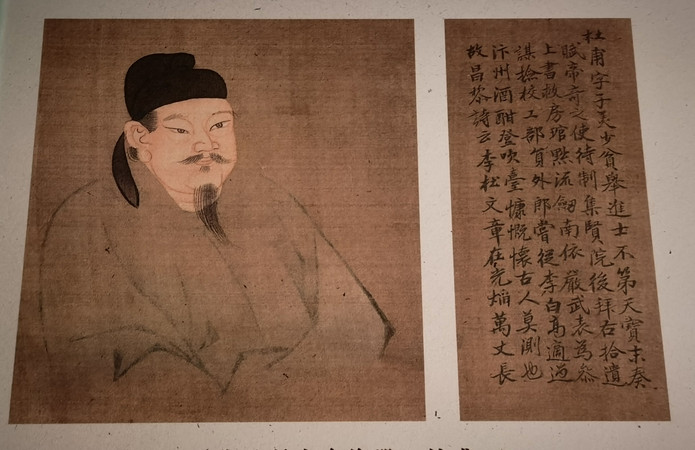 杜甫字子美少貧舉進士不第天寶末奏
賦帝奇之使待制集賢院後拜右拾遺
上書救房琯黜流劍南依嚴武表為參
謀撿挍工部員外郎嘗從李白高適過
汴州酒酣登吹臺慷慨懷古人莫測也
故昌黎詩云李杜文章在光焰萬丈長